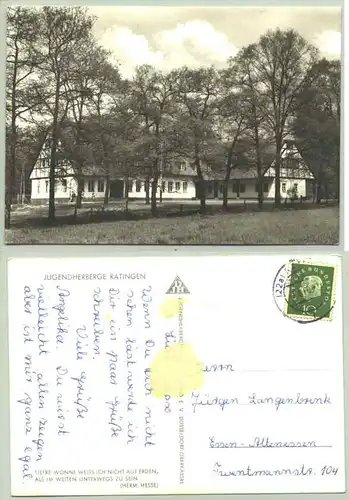 JUGENDHERBERGE RATINGEN
Wenn Du Dich nicht
sehen läst werde ich
Dir ein paar Grüße
schreiben.
Viele Grüße
Angelika. Du must
vielleicht allen zeigen
aber ist mir ganz egal.
TIEFRE WONNE WEISS ICH NICHT AUF ERDEN,
ALS IM WEITEN UNTERWEGS ZU SEIN
(HERM. HESSE)
Jürgen Langenbrink
Essen-Altenessen
Twentmannstr. 104
10